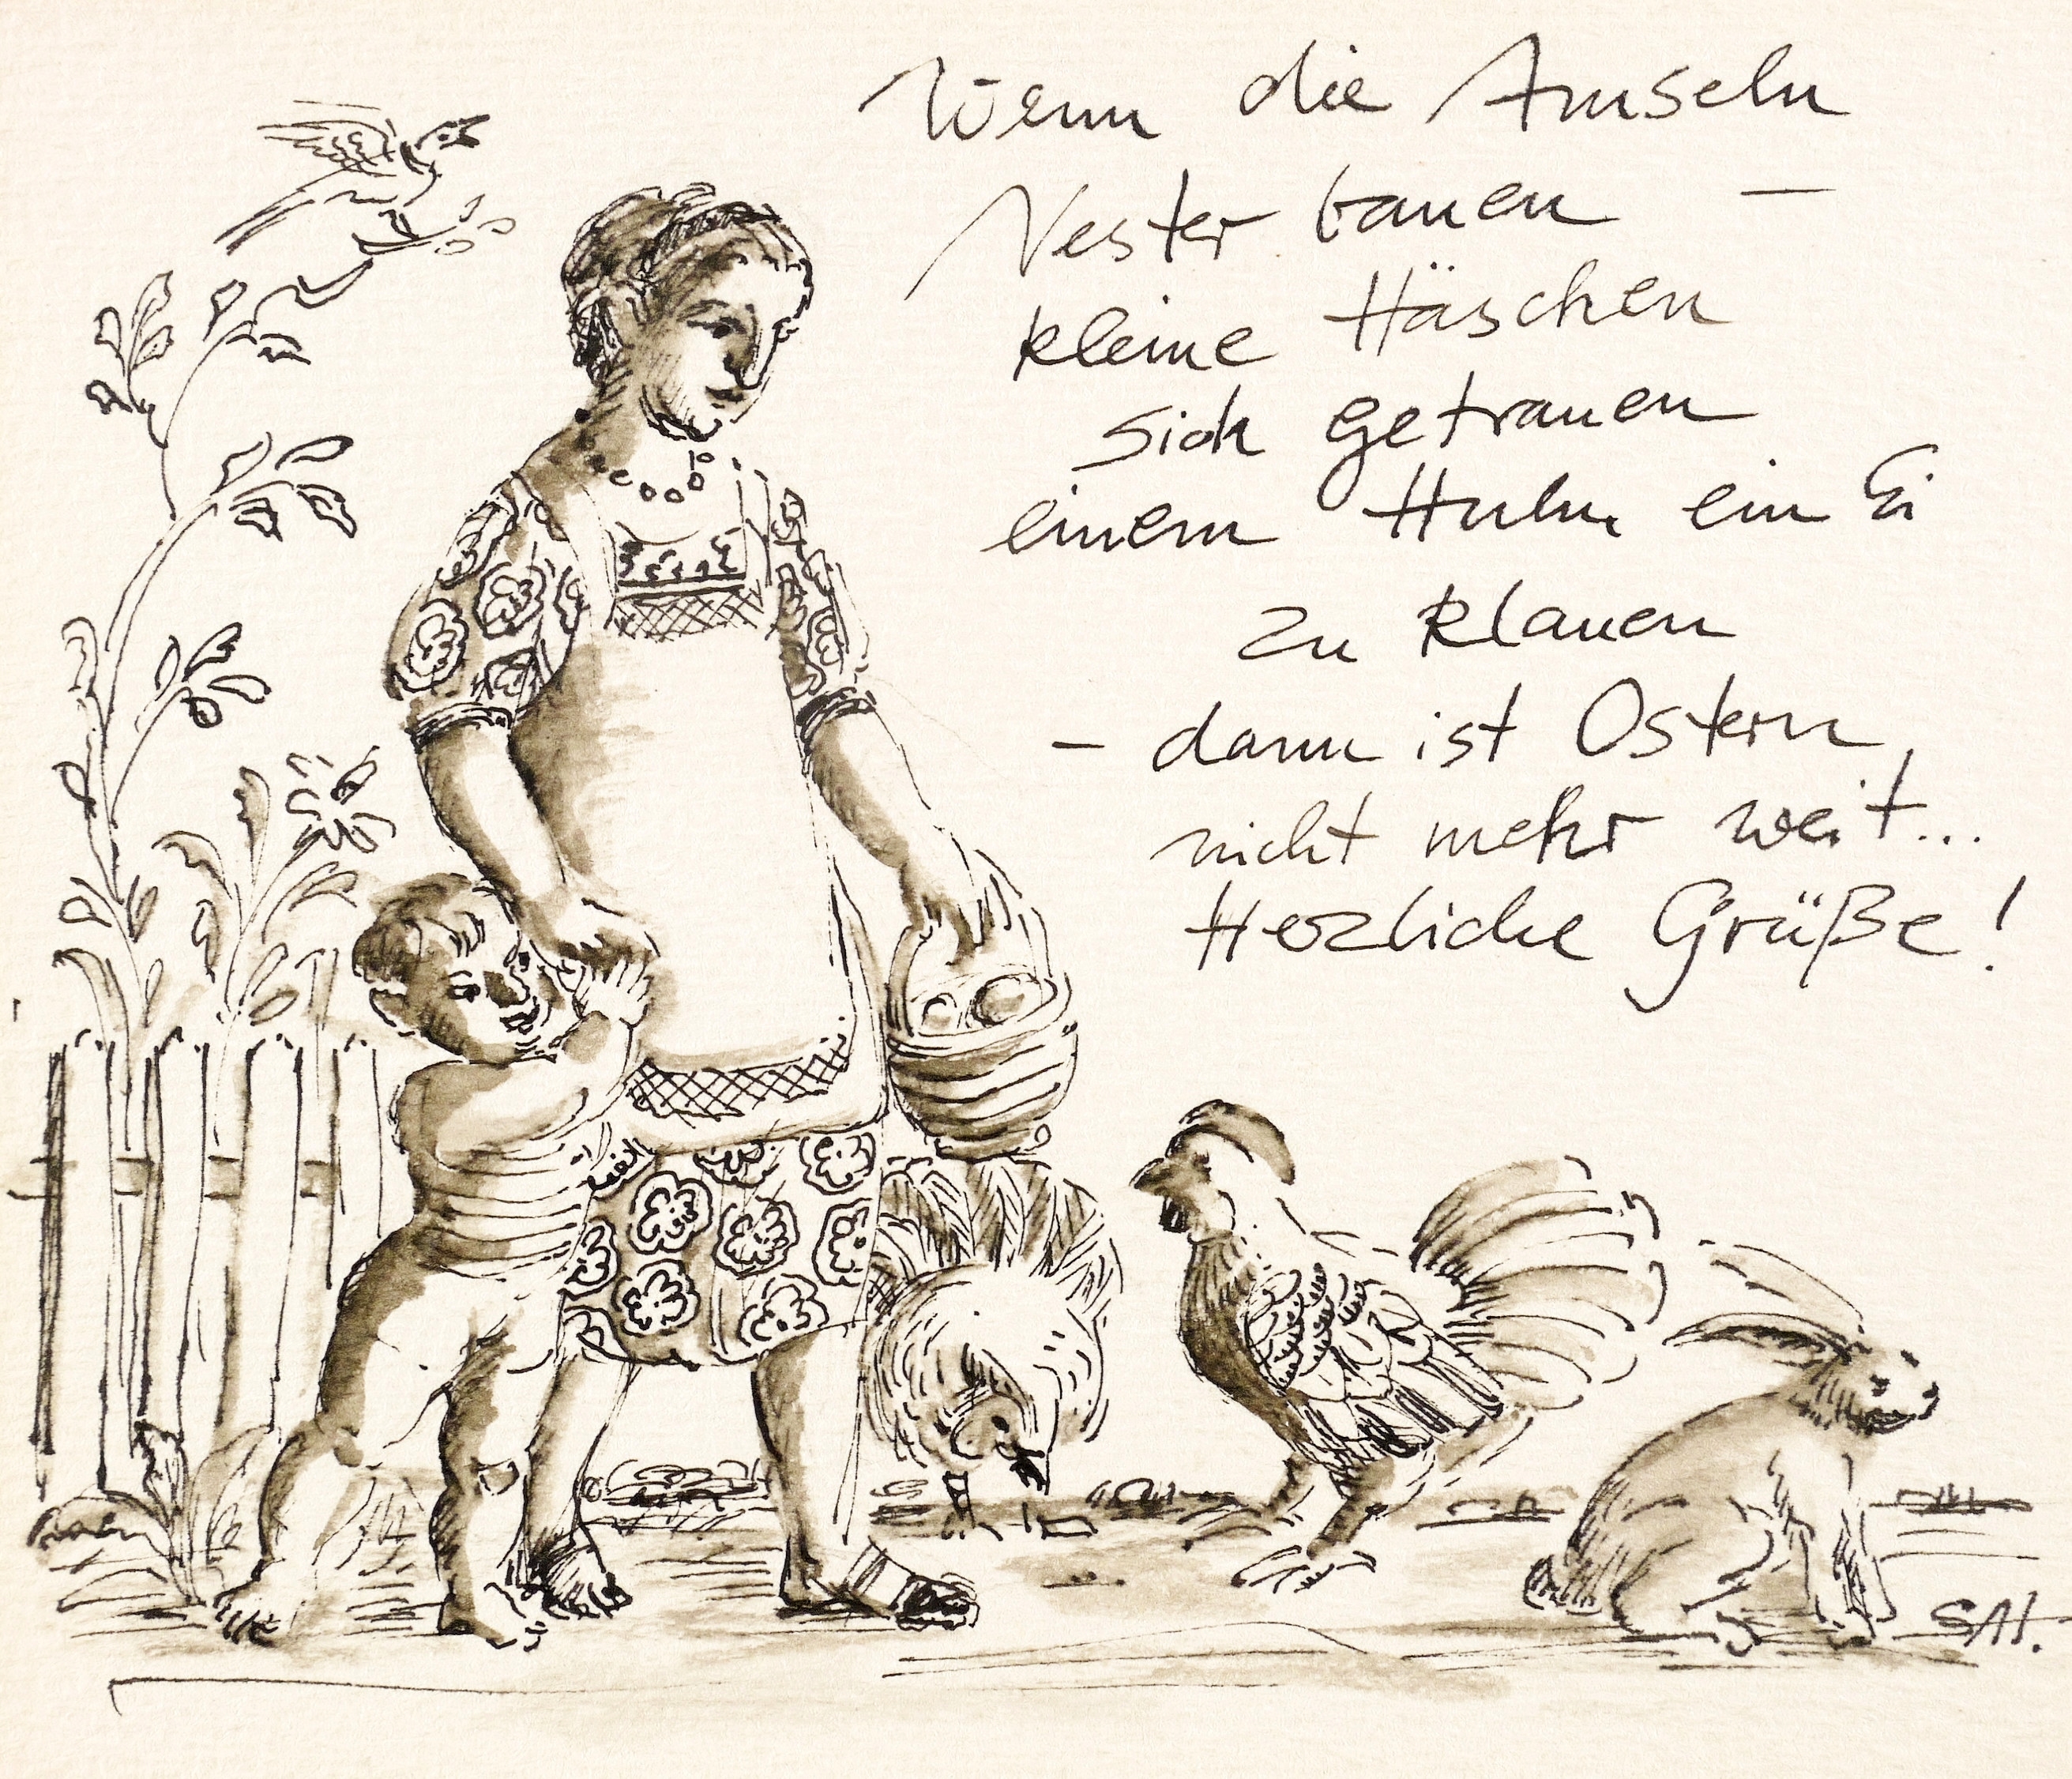 Wenn die Amseln
Nester bauen –
kleine Häschen
sich getrauen
einem Huhn ein Ei
zu klauen
– dann ist Ostern
nicht mehr weit...
Herzliche Grüße!